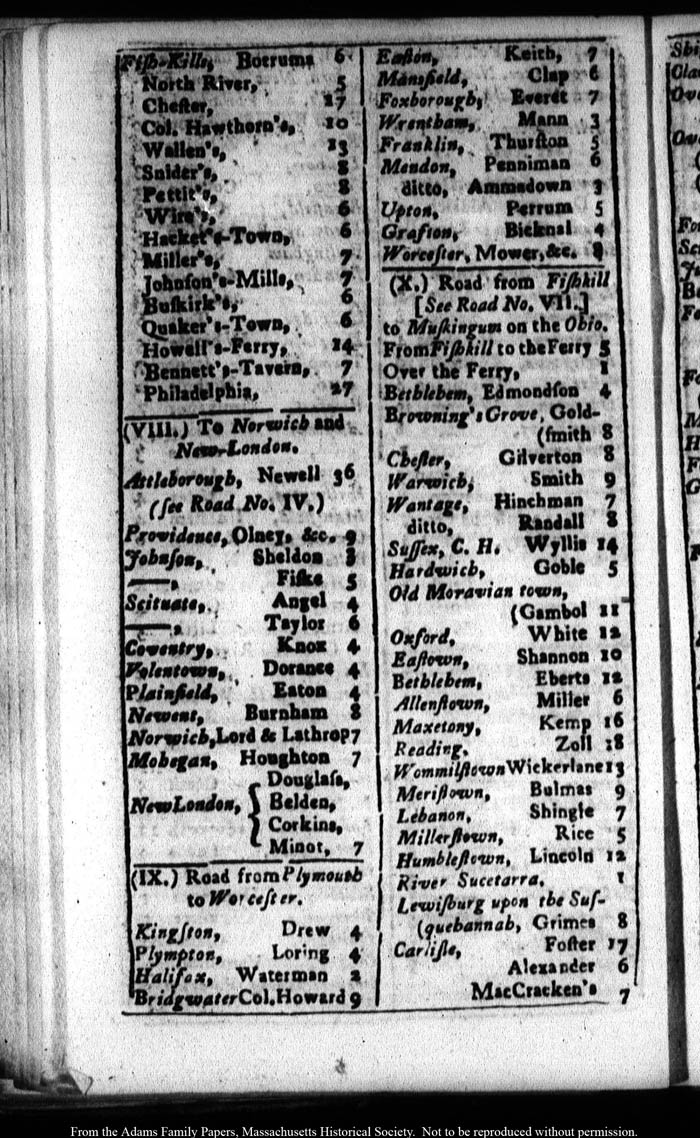 Fiſh-Kills, Boerums 6
North River, 5
Cheſter, 17
Col. Hawthorn's, 10
Wallen's, 13
Snider's, 8
Pettit's, 8
Wire's, 6
Hacket's-Town, 6
Miller's, 7
Johnſon's-Mills, 7
Buſkirk's, 6
Quaker's-Town, 6
Howell's-Ferry, 14
Bennett's-Tavern, 7
Philadelphia, 27
(VIII.) To Norwich and
New-London.
Attleborough, Newell 36
(ſee Road No. IV.)
Providence, Olney, &c. 9
Johnſon, Sheldon 8
——, Fiſke 5
Scituate, Angel 4
——, Taylor 6
Coventry, Knox 4
Volentown, Dorance 4
Plainfield, Eaton 4
Newent, Burnham 8
Norwich, Lord & Lathrop 7
Mohegan, Houghton 7
Douglaſs,
New London, { Belden,
Corkins,
Minor, 7
(IX.) Road from Plymouth
to Worceſter.
Kingſton, Drew 4
Plympton, Loring 4
Halifax, Waterman 2
Bridgwater Col. Howard 9
Eaſton, Keith, 7
Mansfield, Clap 6
Foxborough, Everét 7
Wrentham, Mann 3
Franklin, Thurſton 5
Mendon, Penniman 6
ditto, Ammadown 3
Upton, Perrum 5
Grafton, Bicknal 4
Worceſter, Mower, &c. 8
(X.) Road from Fiſhkill
[See Road No. VII.]
to Muſkingum on the Ohio.
From Fiſhkill to the Ferry 5
Over the Ferry, 1
Bethlebem, Edmondſon 4
Browning's Grove, Gold-
(ſmith 8
Cheſter, Gilverton 8
Warwich, Smith 9
Wantage, Hinchman 7
ditto, Randall 8
Suſſex, C. H. Wyllis 14
Hardwich, Goble 5
Old Moravian town,
(Gambol 11
Oxford, White 12
Eaſtown, Shannon 10
Bethlebem, Eberts 12
Allenſtown, Miller 6
Maxetony, Kemp 16
Reading, Zoll 18
Wommilſtown Wickerlane 13
Meriſtown, Bulmas 9
Lebanon, Shingle 7
Millerſtown, Rice 5
Humbleſtown, Lincoln 12
River Sucetarra, 1
Lewiſburg upon the Suſ-
(quebannab, Grimes 8
Carliſle, Foſter 17
Alexander 6
MacCracken's 7
From the Adams Family Papers, Massachusetts Historical Society. Not to be reproduced without permission.